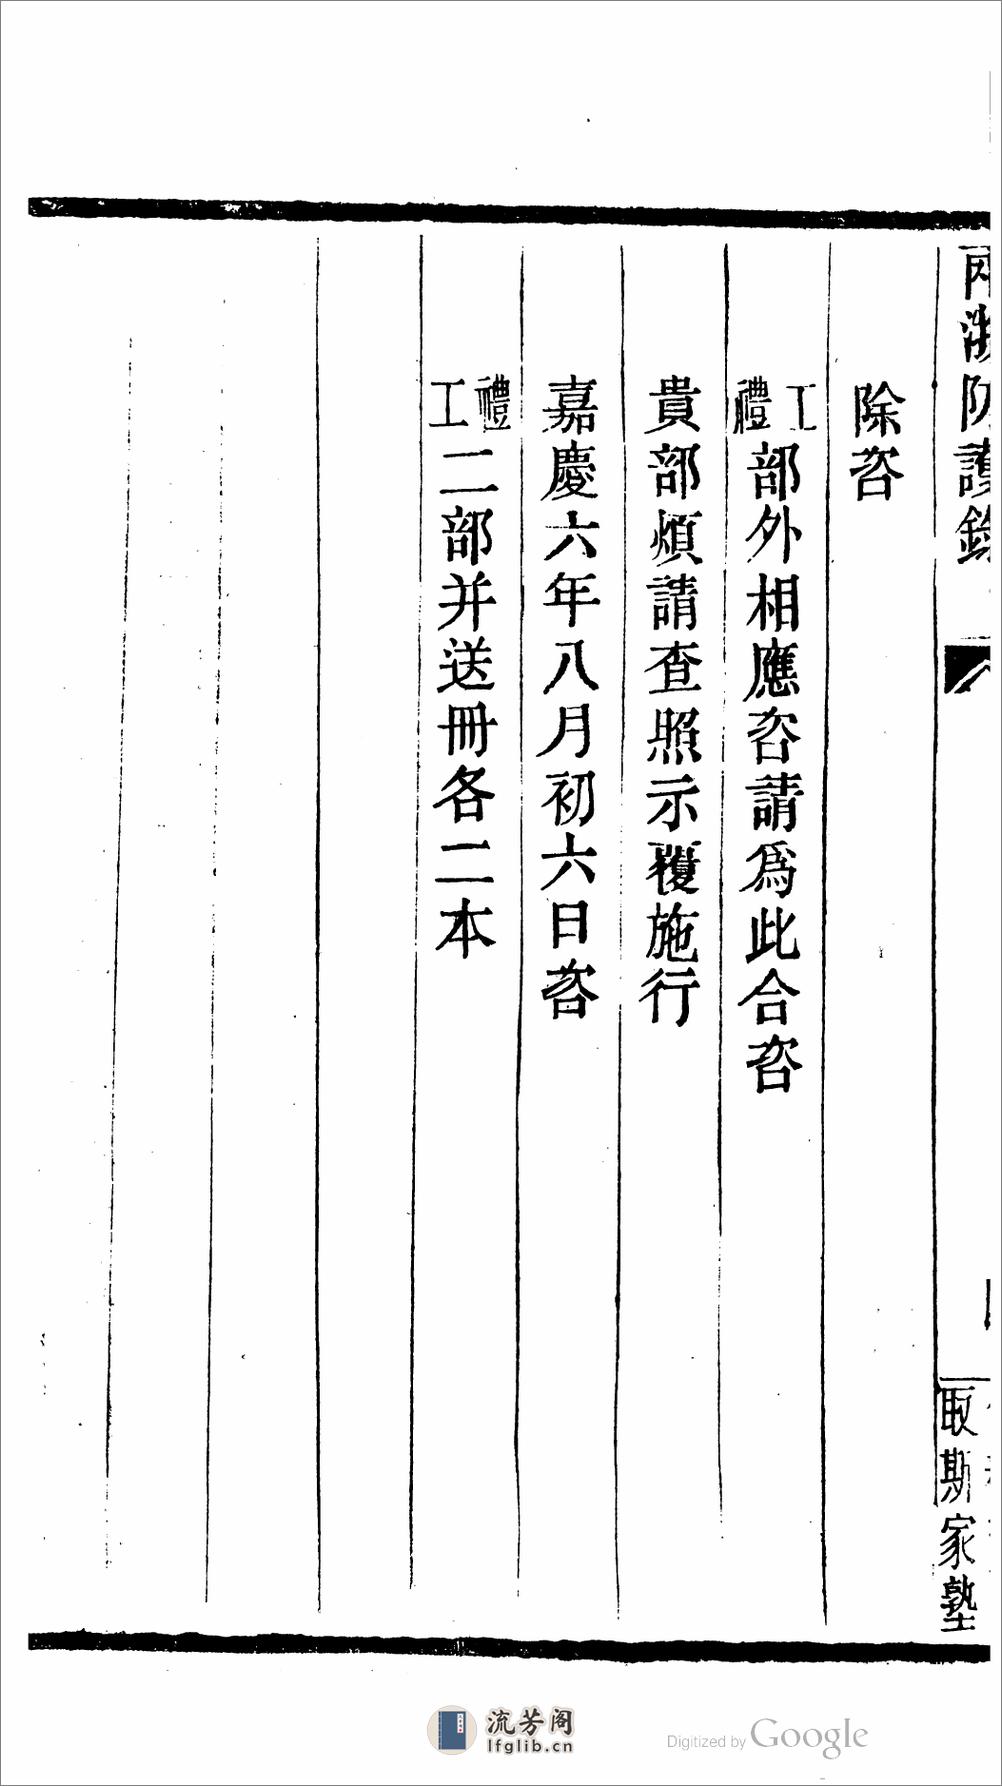 兩浙防護錄
取斯家塾
除咨
工禮部外相應咨請爲此合咨
貴部煩請查照示覆施行
嘉慶六年八月初六日咨
禮工二部并送冊各二本
流芳阁
lfglib.cn
Digitized by Google